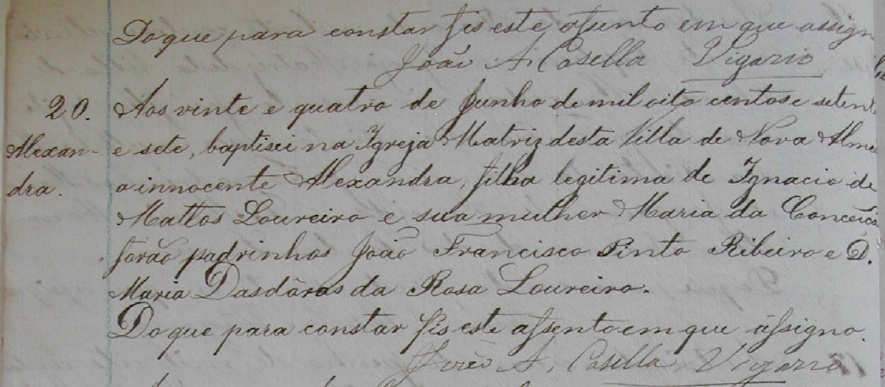 Do que para constar fis este assento em que assign
João A. Casella Vigario
20. Aos vinte e quatro de Junho de mil oito centos e setent
Alexan- e sete, baptisei na Igreja Matriz desta Villa de Nova Alme
dra. a innocente Alexandra, filha legitima de Ignacio de
Mattos Loureiro e sua mulher Maria da Conceicã
forão padrinhos João Francisco Pinto Ribeiro e D.
Maria Dasdôras da Rosa Loureiro.
Do que para constar fis este assento em que assigno.
João A. Casella Vigario